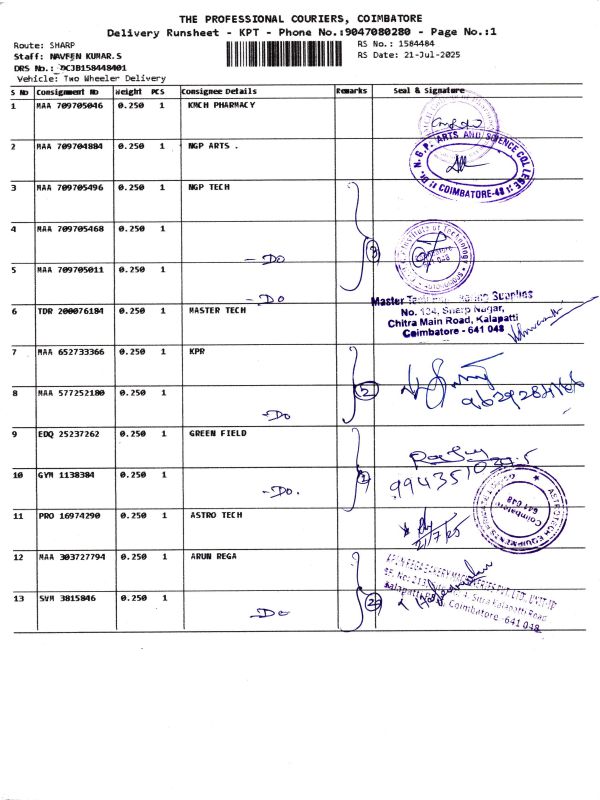 THE PROFESSIONAL COURIERS, COIMBATORE
Delivery Runsheet - KPT - Phone No.:9047080280 - Page No.:1
Route: SHARP
RS No.: 1584484
Staff: NAVEEN KUMAR.S
RS Date: 21-Jul-2025
DRS No.: DCJB158448401
Vehicle: Two Wheeler Delivery
S No Consignment No Weight PCS Consignee Details Remarks Seal & Signature
1 MAA 709705046 0.250 1 KMCH PHARMACY
2 MAA 709704884 0.250 1 NGP ARTS .
Dr. N.G.P. ARTS AND SCIENCE COLLEGE
COIMBATORE-48
3 MAA 709705496 0.250 1 NGP TECH
4 MAA 709705468 0.250 1
- Do
3
Institute of Technology
641 048
5 MAA 709705011 0.250 1
- Do
6 TDR 200076184 0.250 1 MASTER TECH
Master Supplies
No. 134, Sharp Nagar,
Chitra Main Road, Kalapatti
Coimbatore - 641 048
7 MAA 652733366 0.250 1 KPR
8 MAA 577252180 0.250 1
-Do
2
9 EDQ 25237262 0.250 1 GREEN FIELD
10 GYM 1138384 0.250 1
-Do.
Coimbatore
641 048
11 PRO 16974290 0.250 1 ASTRO TECH
21/7/25
12 MAA 303727794 0.250 1 ARUN REGA
13 SVM 3815846 0.250 1
-Do
Kalapatti
Coimbatore -641 048